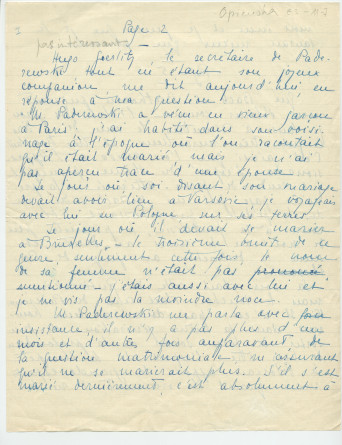 Page 2
pas intéressant
Hugo Goerlitz, le secrétaire de Pade-
rewski tout en étant son joyeux
companion me dit aujourd'hui en
réponse à ma question
M. Paderewski a vécu en vieux garçon
à Paris. j'ai habité dans son voisi-
nage à l'époque où l'on racontait
qu'il était marié, mais je n'ai
pas aperçu trace d'une épouse.
Le jour où, soi disant son mariage
devait avoir lieu à Varsovie, je voyageais
avec lui en Pologne, sur ses terres
Le jour où il devait se marier
à Bruxelles - le troisième bruit de ce
genre, seulement cette fois le nom
de sa femme n'était pas prononcé
mentionné - j'étais aussi avec lui et
je ne vis pas la moindre noce.
M. Paderewski me parla avec
insistance, il n'y a pas plus d'un
mois et d'autres fois auparavant, de
la question matrimoniale m'assurant
qu'il ne se marierait plus. S'il s'est
marié dernièrement, c'est absolument à